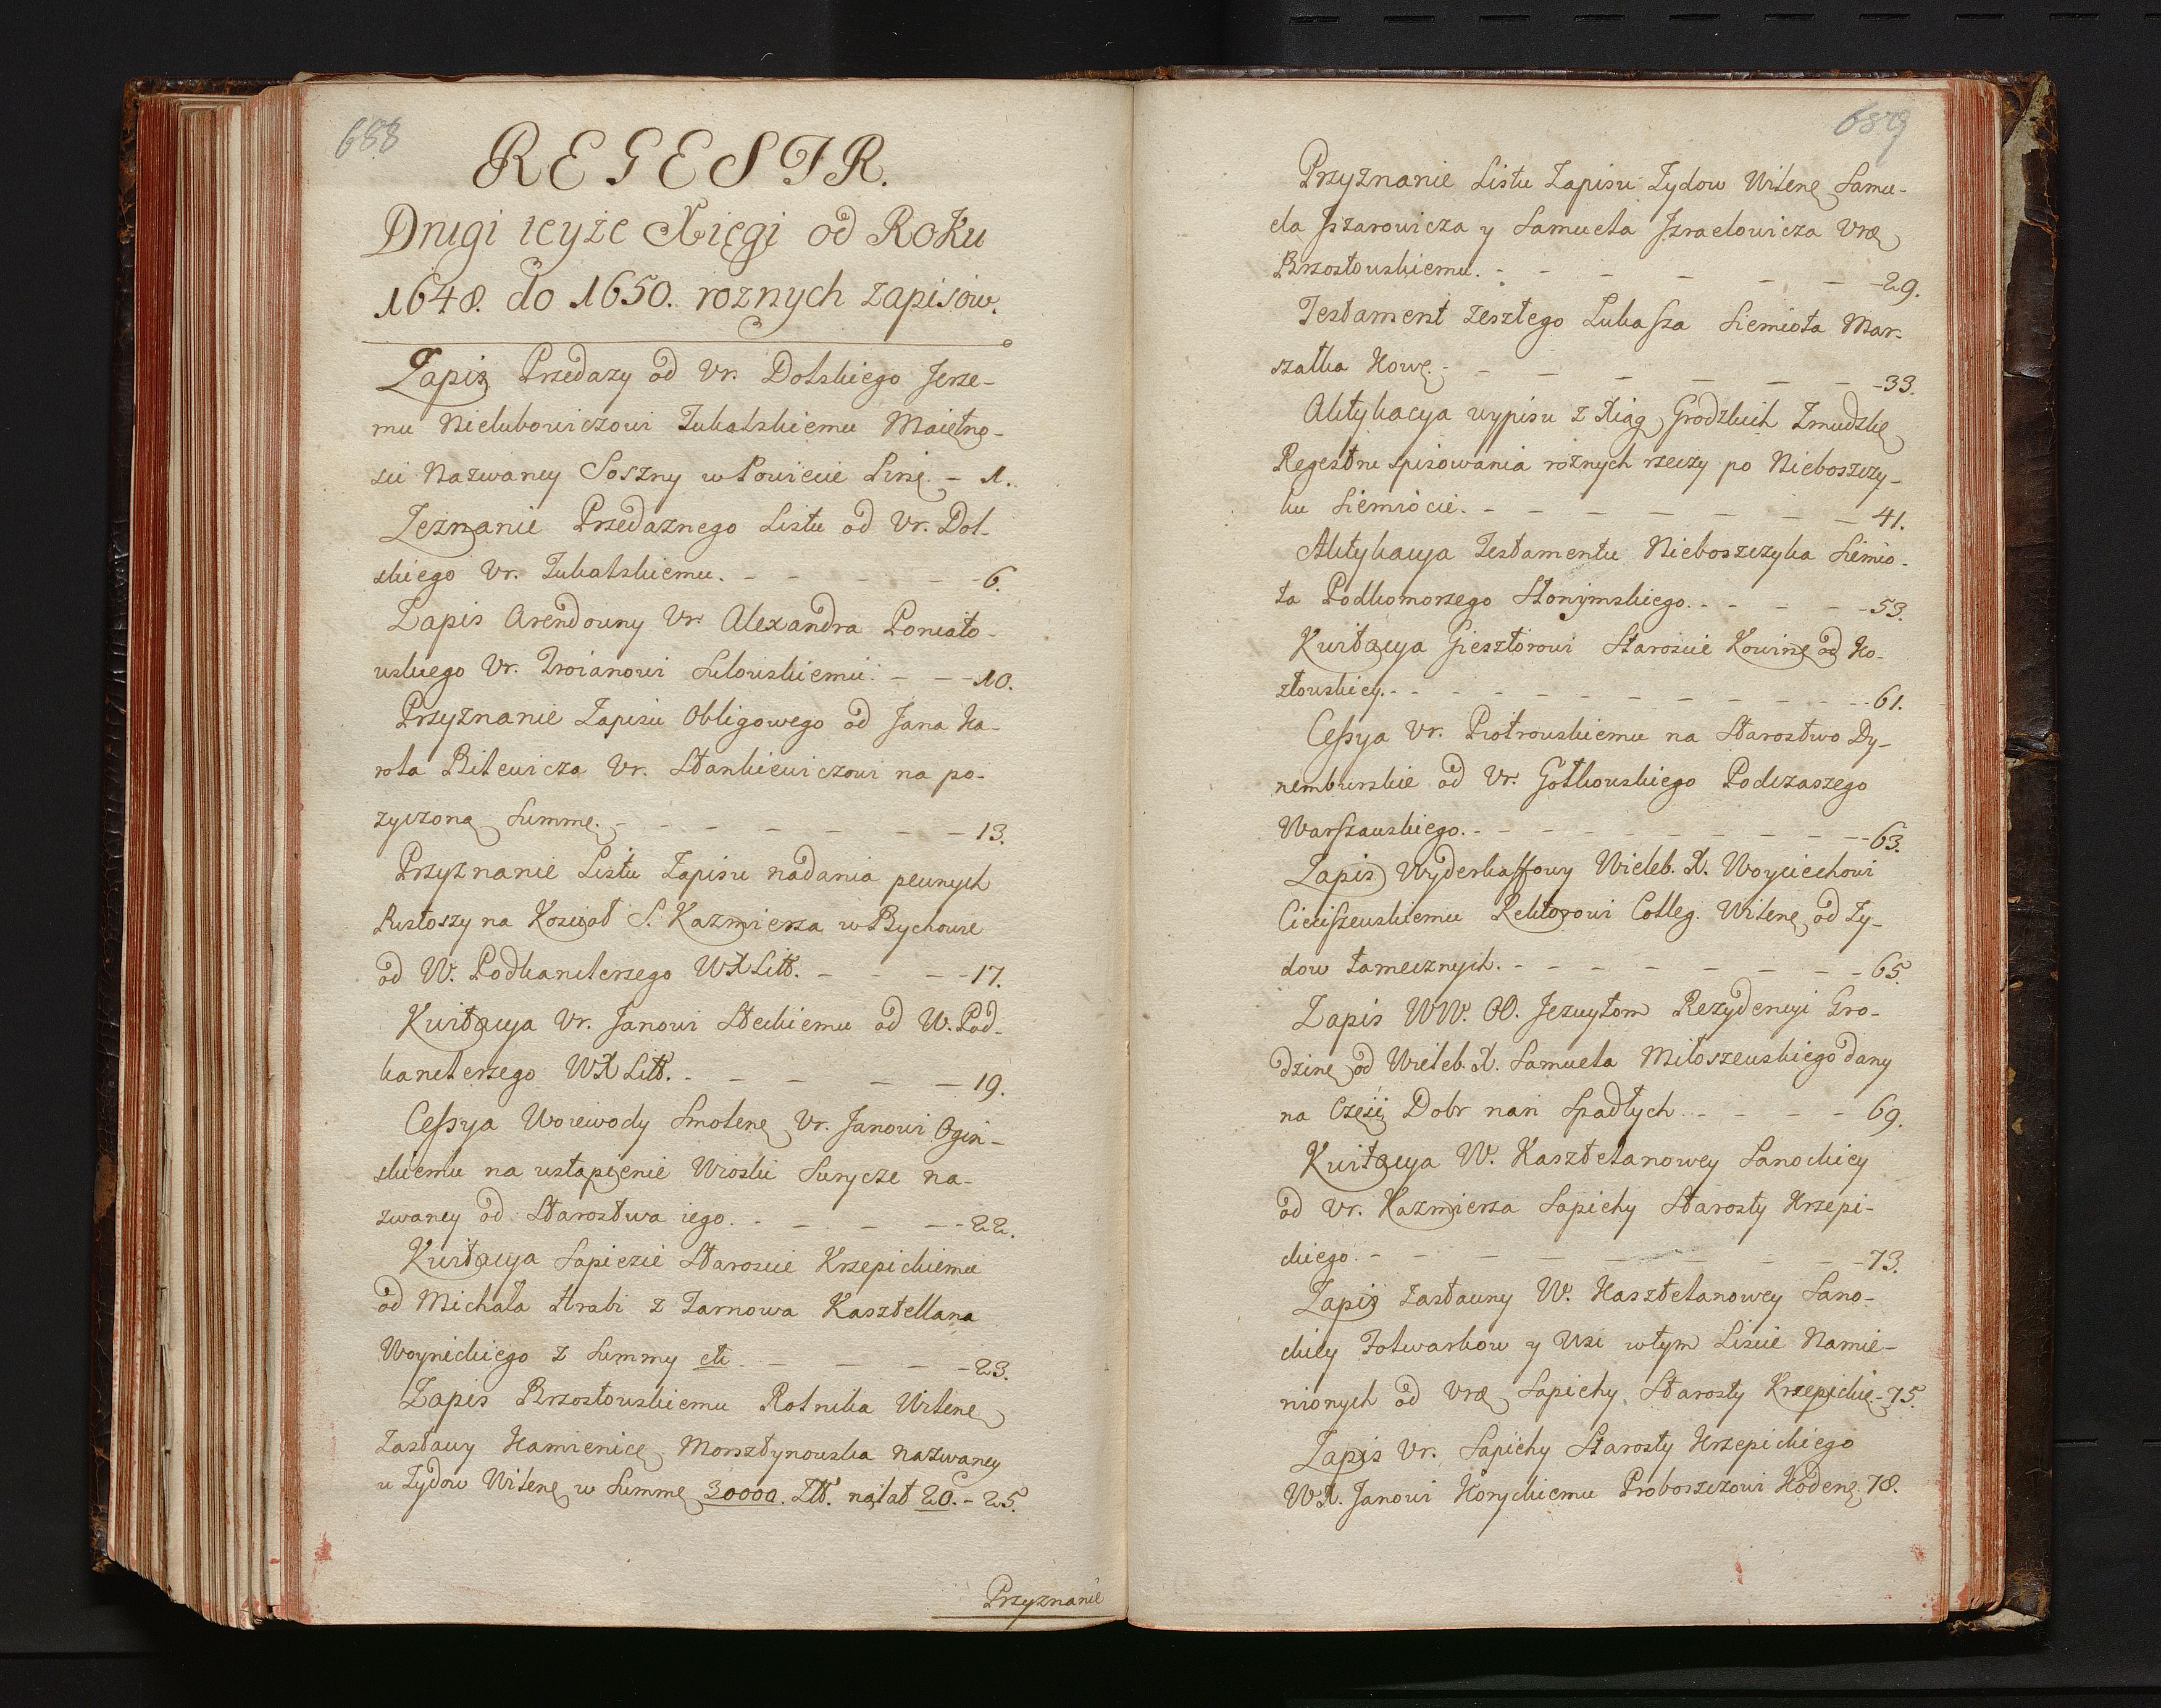 688
REGESTR.
Drugi teyże Xięgi od Roku
1648. do 1650. roznych zapisow.
Zapis Przedazy od Ur. Dolskiego Jerze-
mu Nielubowiczowi Tukalskiemu Maiętno-
sci Nazwaney Soszny w Powiecie Pinę. - 1.
Zeznanie Przedaznego Listu od Ur. Dol-
skiego Ur. Tukalskiemu. - - - - - 6.
Zapis Arendowny Ur. Alexandra Poniato-
wskiego Ur. Troianowi Sulowskiemu. - - - 10.
Przyznanie Zapisu Obligowego od Jana Ka-
rola Bilewicza Ur. Stankiewiczowi na po-
zyczoną Summę. - - - - - - - 13.
Przyznanie Listu Zapisu nadania pewnych
Pustoszy na Koscioł S. Kazmierza w Bychowie
od W. Podkanclerzego WXLitt. - - - - 17.
Kwitacya Ur. Janowi Steckiemu od W. Pod-
kanclerzego WXLitt. - - - - - 19.
Cessya Woiewody Smolenę Ur. Janowi Ogin-
skiemu na ustąpienie Wioski Surycze na-
zwaney od Starostwa iego. - - - - - 22.
Kwitacya Sapiezie Staroscie Krzepickiemu
od Michała Hrabi z Tarnowa Kasztellana
Woynickiego z Summy etc. - - - - 23.
Zapis Brzostowskiemu Rotmka Wilenę
Zastawy Kamienicę Morsztynowska nazwaney
u Zydow Wilenę w Summę 30000. Ztt. na lat 20. - 25.
Przyznanie
689
Przyznanie Listu Zapisu Zydow Wilenę Samu-
ela Jszarowicza y Samuela Jzraelowicza Urę
Brzostowskiemu. - - - - - - - 29.
Testament zeszłego Lukasza Siemiota Mar-
szałka Kowę. - - - - - - - 33.
Aktykacya wypisu z Xiąg Grodzkich Zmudzkę
Regestru spisowania roznych rzeczy po Nieboszczy-
ku Siemiocie. - - - - - - - 41.
Aktykacya Testamentu Nieboszczyka Siemio-
ta Podkomorzego Słonimskiego. - - - - - 53.
Kwitacya Giesztorowi Staroscie Kowinę od Ko-
złowskiey. - - - - - - - - - 61.
Cessya Ur. Piotrowskiemu na Starostwo Dy-
nemburskie od Ur. Gotkowskiego Podczaszego
Warszawskiego. - - - - - - - - 63.
Zapis Wyderkaffowy Wieleb. X. Woyciechowi
Cieciszewskiemu Rektorowi Colleg. Wilenę od Zy-
dow tamecznych. - - - - - - - - 65.
Zapis WW. OO. Jezuytom Rezydencyi Gro-
dzinę od Wieleb. X. Samuela Miłoszewskiego dany
na Częśc Dobr nań Spadłych. - - - - 69.
Kwitacya W. Kasztelanowey Sanockiey
od Ur. Kazmierza Sapiehy Starosty Krzepi-
ckiego. - - - - - - - - 73.
Zapis zastawny W. Kasztelanowey Sano-
ckiey Folwarkow y Wsi w tym Liscie Namie-
nionych od Urę Sapiehy Starosty Krzepickię. - 75.
Zapis Ur. Sapiehy Starosty Krzepickiego
WX. Janowi Koryckiemu Proboszczowi Kodenę 78.